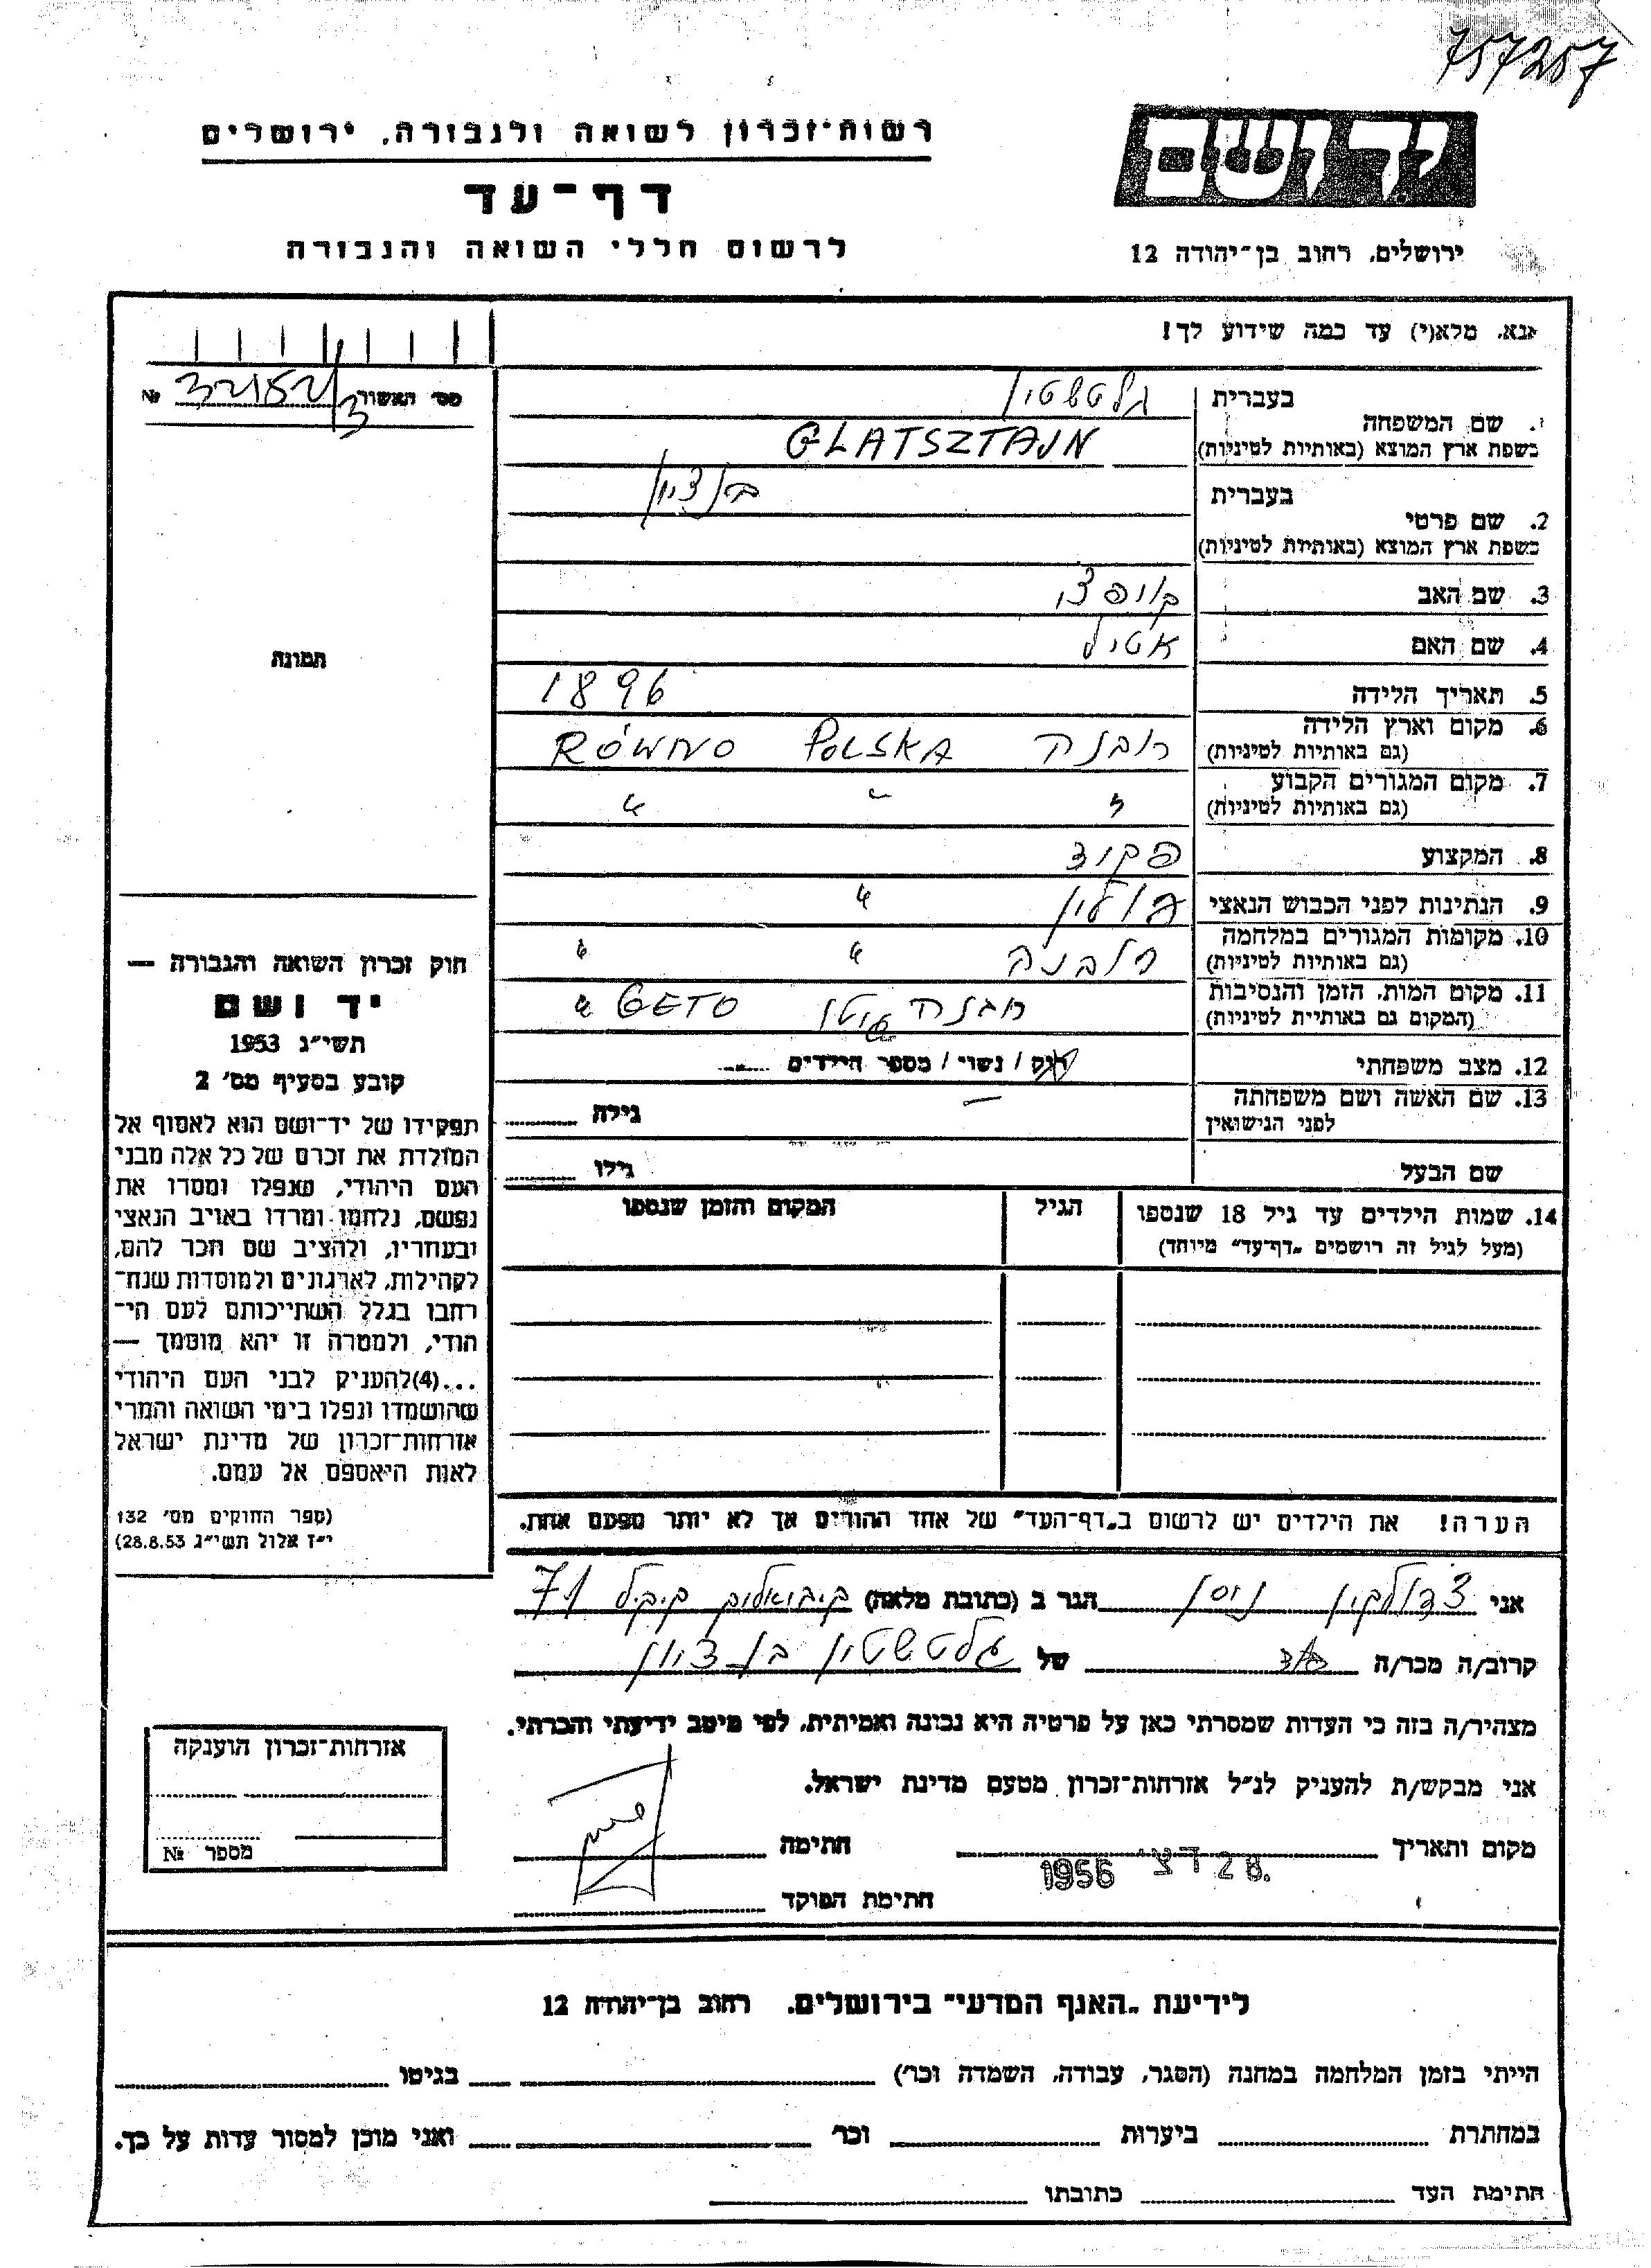 757257
יד ושם
ירושלים, רחוב בן־יהודה 12
רשות־זכרון לשואה ולגבורה, ירושלים
דף־עד
לרשום חללי השואה והגבורה
אנא, מלא(י) עד כמה שידוע לך!
מס׳ האשור №
1. שם המשפחה
בעברית גלטשטין
בשפת ארץ המוצא (באותיות לטיניות) GLATSZTAJN
2. שם פרטי
בעברית בן ציון
בשפת ארץ המוצא (באותיות לטיניות)
3. שם האב
4. שם האם אטיל
5. תאריך הלידה 1896
6. מקום וארץ הלידה רובנה POLSKA RÓWNO
(גם באותיות לטיניות)
7. מקום המגורים הקבוע " " "
(גם באותיות לטיניות)
8. המקצוע פקיד
9. הנתינות לפני הכבוש הנאצי פולין "
10. מקומות המגורים במלחמה רובנה " "
(גם באותיות לטיניות)
11. מקום המות, הזמן והנסיבות רובנה גיטו GETO "
(המקום גם באותיות לטיניות)
12. מצב משפחתי רוק / נשוי / מספר הילדים
13. שם האשה ושם משפחתה — גילה
לפני הנישואין
שם הבעל גילו
14. שמות הילדים עד גיל 18 שנספו הגיל המקום והזמן שנספו
(מעל לגיל זה רושמים „דף־עד״ מיוחד)
הערה! את הילדים יש לרשום ב„דף־העד״ של אחד ההורים אך לא יותר מפעם אחת.
תמונה
חוק זכרון השואה והגבורה —
יד ושם
תשי״ג 1953
קובע בסעיף מס׳ 2
תפקידו של יד־ושם הוא לאסוף אל
המולדת את זכרם של כל אלה מבני
העם היהודי, שנפלו ומסרו את
נפשם, נלחמו ומרדו באויב הנאצי
ובעוזריו, ולהציב שם וזכר להם,
לקהילות, לארגונים ולמוסדות שנח־
רבו בגלל השתייכותם לעם הי־
הודי, ולמטרה זו יהא מוסמך —
...(4)להעניק לבני העם היהודי
שהושמדו ונפלו בימי השואה והמרי
אזרחות־זכרון של מדינת ישראל
לאות היאספם אל עמם.
(ספר החוקים מס׳ 132
י״ז אלול תשי״ג 28.8.53)
אני ניסן הגר ב (כתובת מלאה) 71
קרוב/ה מכר/ה של גלטשטין בן ציון
מצהיר/ה בזה כי העדות שמסרתי כאן על פרטיה היא נכונה ואמיתית, לפי מיטב ידיעתי והכרתי.
אני מבקש/ת להעניק לנ״ל אזרחות־זכרון מטעם מדינת ישראל.
מקום ותאריך 28 דצ׳ 1956 חתימה
חתימת הפוקד
אזרחות־זכרון הוענקה
מספר №
לידיעת „האגף המדעי״ בירושלים, רחוב בן־יהודה 12
הייתי בזמן המלחמה במחנה (הסגר, עבודה, השמדה וכו׳) בגיטו
במחתרת ביערות וכו׳ ואני מוכן למסור עדות על כך.
חתימת העד כתובתו